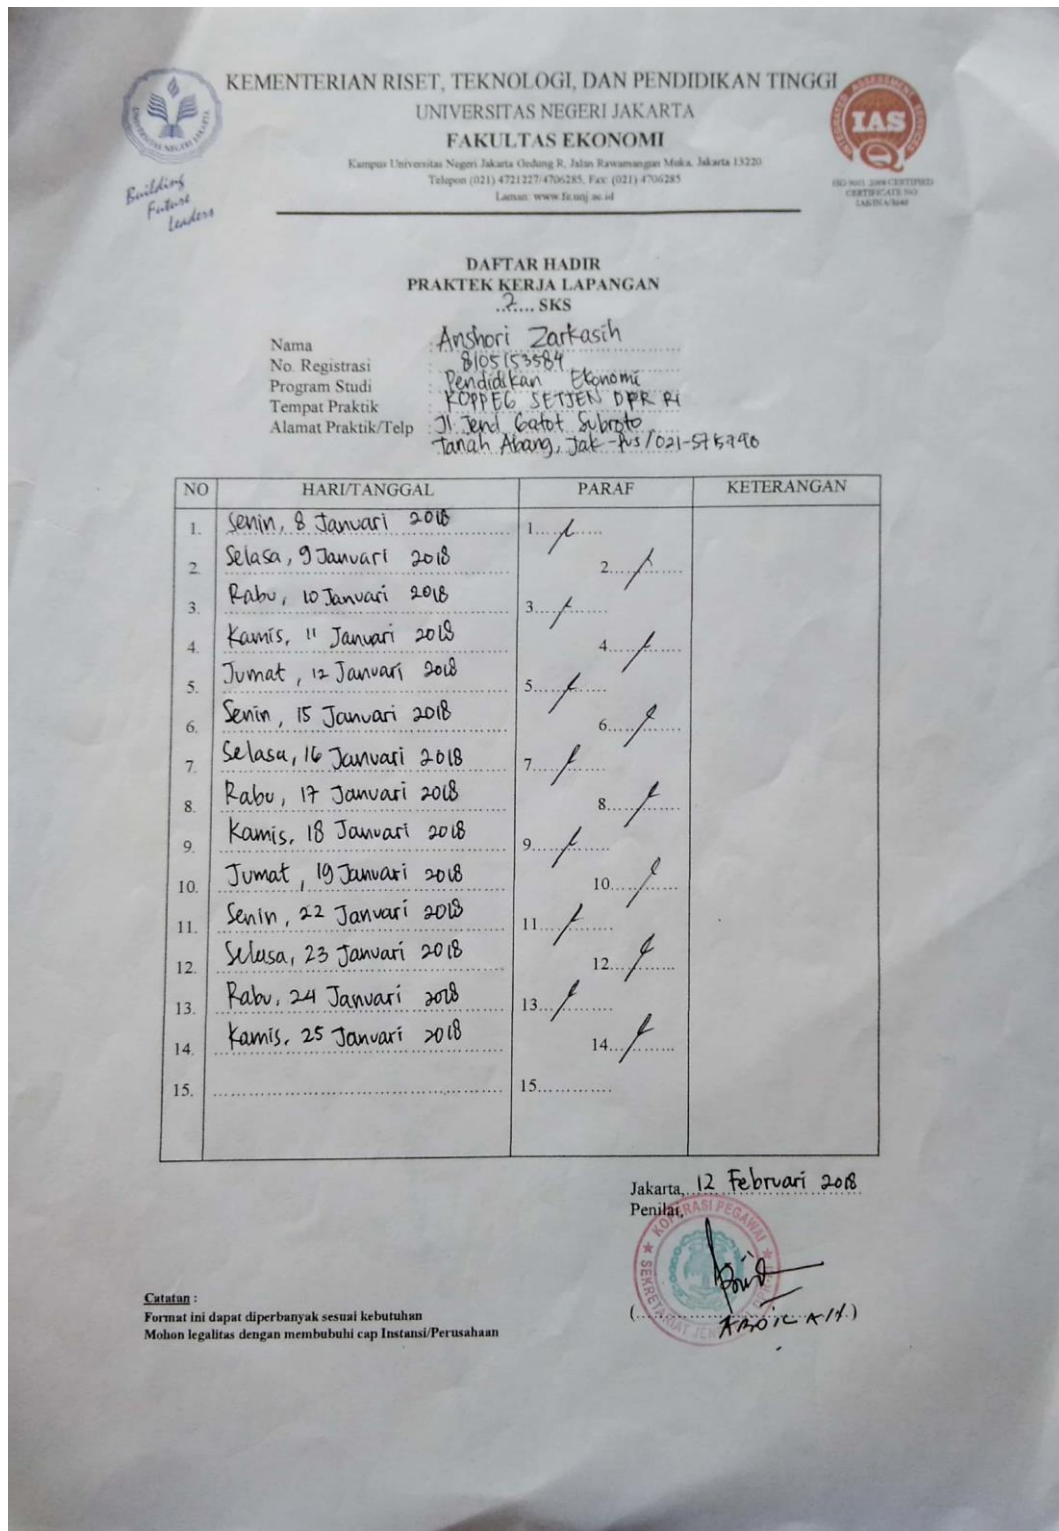 KEMENTERIAN RISET, TEKNOLOGI, DAN PENDIDIKAN TINGGI
UNIVERSITAS NEGERI JAKARTA
FAKULTAS EKONOMI
Kampus Universitas Negeri Jakarta Gedung R, Jalan Rawamangun Muka, Jakarta 13220
Telepon (021) 4721227/4706285, Fax: (021) 4706285
Laman: www.fe.unj.ac.id
UNIVERSITAS NEGERI JAKARTA
Building
Future
Leaders
INTEGRATED ASSESSMENT SERVICES
IAS
ISO 9001:2008 CERTIFIED
CERTIFICATE NO
DAFTAR HADIR
PRAKTEK KERJA LAPANGAN
..2.... SKS
Nama : Anshori Zarkasih
No. Registrasi : 8105153584
Program Studi : Pendidikan Ekonomi
Tempat Praktik : KOPPEG SETJEN DPR RI
Alamat Praktik/Telp : Jl. Jend Gatot Subroto
Tanah Abang, Jak-Pus/021-5715790
NO HARI/TANGGAL PARAF KETERANGAN
1. Senin, 8 Januari 2018 1.
2. Selasa, 9 Januari 2018 2.
3. Rabu, 10 Januari 2018 3.
4. Kamis, 11 Januari 2018 4.
5. Jumat, 12 Januari 2018 5.
6. Senin, 15 Januari 2018 6.
7. Selasa, 16 Januari 2018 7.
8. Rabu, 17 Januari 2018 8.
9. Kamis, 18 Januari 2018 9.
10. Jumat, 19 Januari 2018 10.
11. Senin, 22 Januari 2018 11.
12. Selasa, 23 Januari 2018 12.
13. Rabu, 24 Januari 2018 13.
14. Kamis, 25 Januari 2018 14.
15. 15.
Jakarta, 12 Februari 2018
Penilai,
KOPERASI PEGAWAI
Catatan :
Format ini dapat diperbanyak sesuai kebutuhan
Mohon legalitas dengan membubuhi cap Instansi/Perusahaan